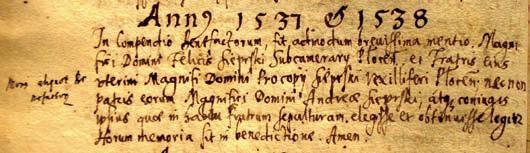 Anno 1537 & 1538
In Compendio Benefactorum, fit admodum brevissima mentio. Magni
fici Domini Felicis Sieprski Subcamerary Plocen, et Fratris eius
uterini Magnifici Domini Procopy Sieprski Vexilliferi Plocen, nec non
patris eorum Magnifici Domini Andreæ Sieprski; atq coniugis
ipsius quos in habitu Fratrum sepulturam elegisse et obtinuisse legitur
Horum memoria sit in benedictione. Amen.
Mors aliquot Be
nefactorum